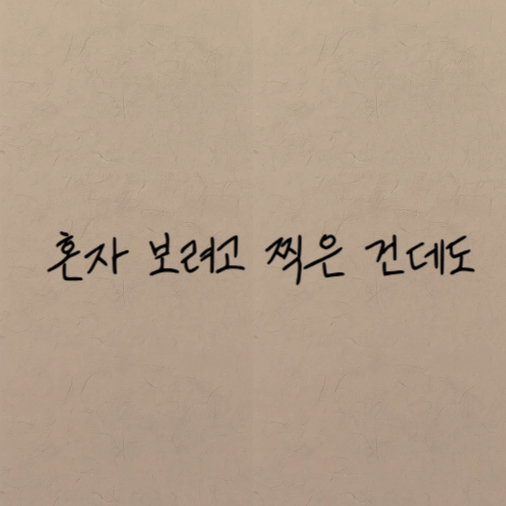 혼자 보려고 찍은 건데도